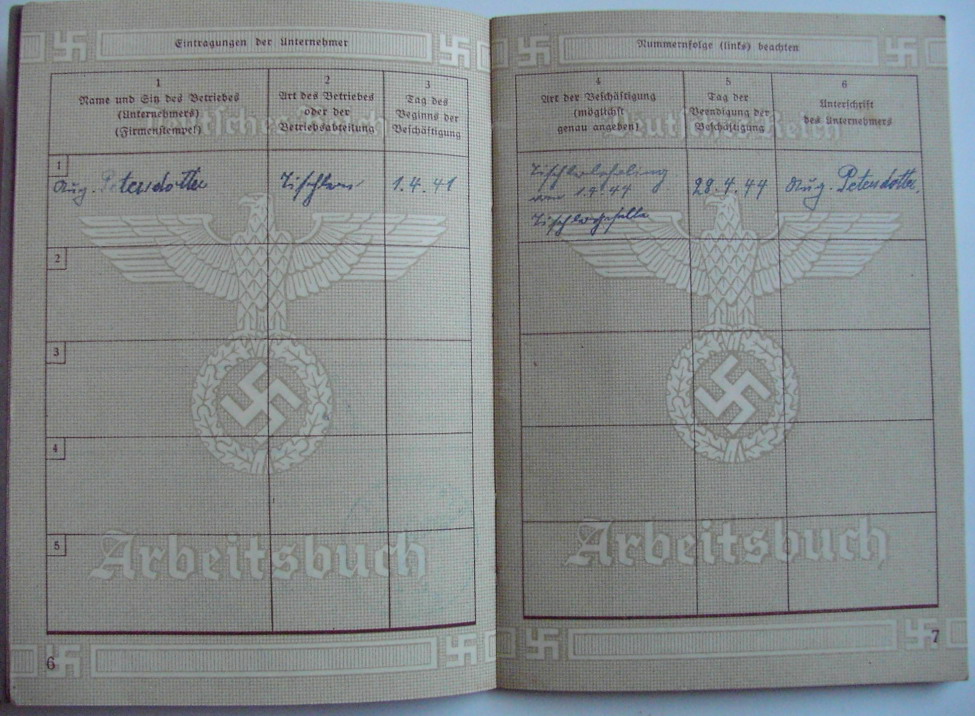 Eintragungen der Unternehmer
1
Name und Sitz des Betriebes
(Unternehmers)
(Firmenstempel)
2
Art des Betriebes
oder der
Betriebsabteilung
3
Tag des
Beginns der
Beschäftigung
1
Aug. Petersdotter
Tischlerei
1.4.41
2
3
4
5
Deutsches Reich
Arbeitsbuch
6
Nummernfolge (links) beachten
4
Art der Beschäftigung
(möglichst
genau angeben)
5
Tag der
Beendigung der
Beschäftigung
6
Unterschrift
des Unternehmers
Tischlerlehrling
1.4.44
Tischlergeselle
28.4.44
Aug. Petersdotter
Deutsches Reich
Arbeitsbuch
7